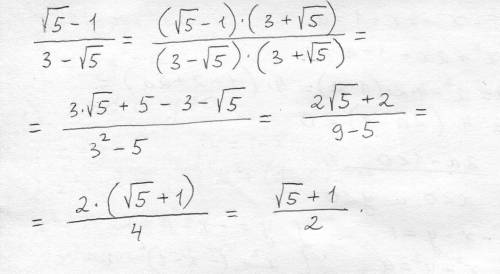 (√5 - 1)/(3 - √5) = ((√5 - 1)·(3 + √5))/((3 - √5)·(3 + √5)) =
= (3·√5 + 5 - 3 - √5)/(3² - 5) = (2√5 + 2)/(9 - 5) =
= (2·(√5 + 1))/4 = (√5 + 1)/2 .